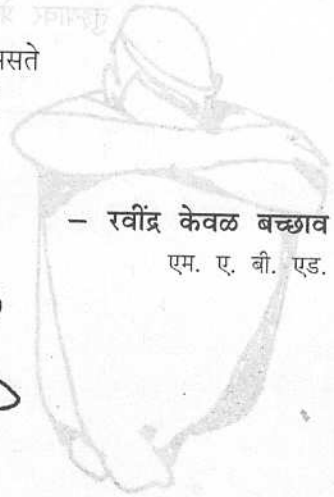 – रवींद्र केवळ बच्छाव
एम. ए. बी. एड.